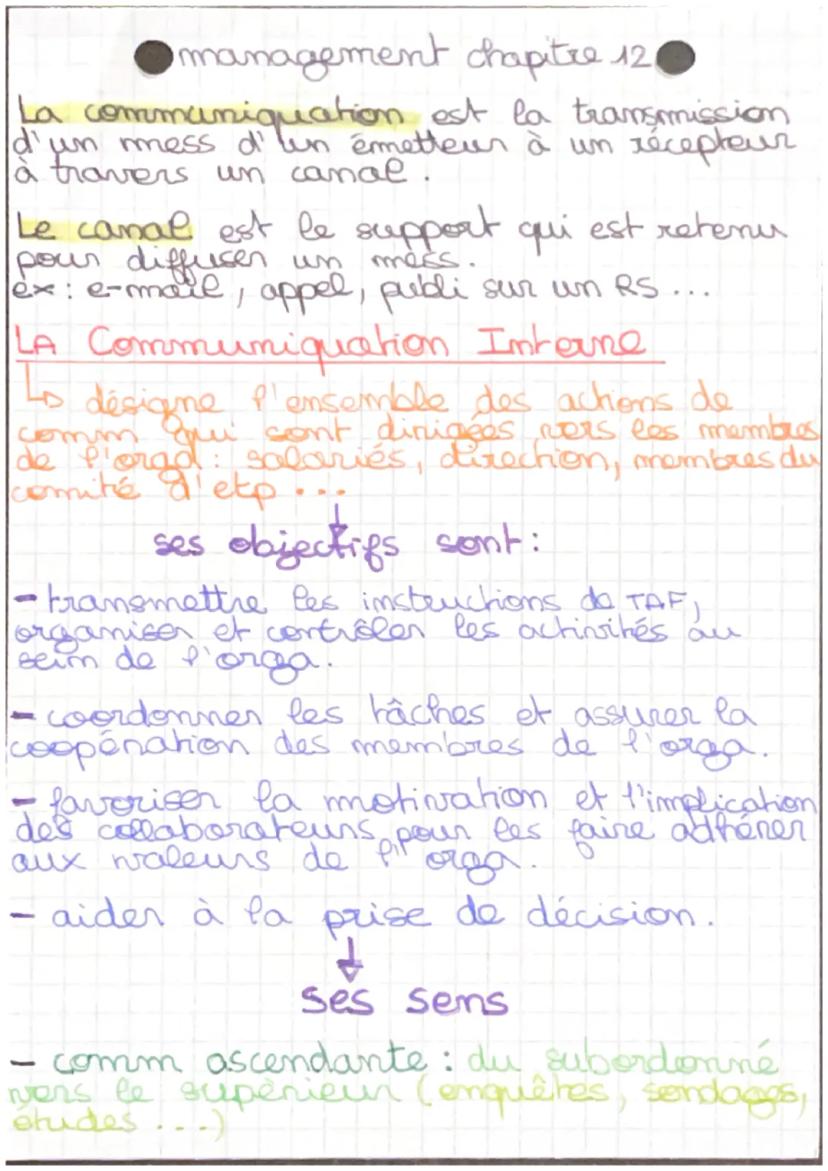 management chapitre 12
La communiquation est la transmission
d'un mess d'un émetteur à un récepteur
à travers un canal.
Le canal est le support qui est retenu
pour diffuser un mess.
ex: e-mail, appel, publi sur un RS ...
LA Communiquation Interne
↳ désigne l'ensemble des actions de
comm qui sont dirigées vers les membres
de l'orga: salariés, direction, membres du
comité d'etp ...
ses objectifs sont:
- transmettre les instructions de TAF,
organiser et contrôler les activités au
sein de l'orga.
- coordonner les tâches et assurer la
coopération des membres de l'orga.
- favoriser la motivation et l'implication
des collaborateurs pour les faire adhérer
aux valeurs de l'orga.
- aider à la prise de décision.
ses sens
- comm ascendante: du subordonné
vers le supèrieur (enquêtes, sondages,
études ...)